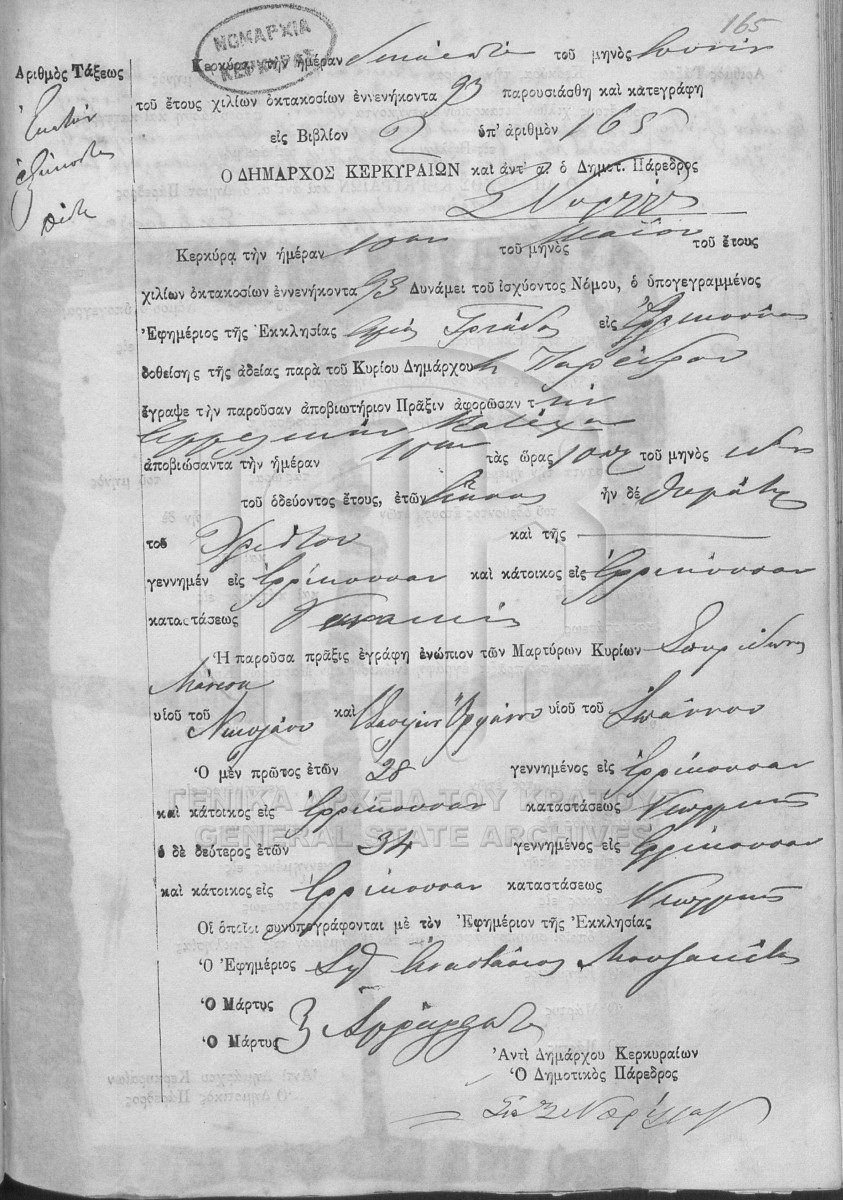 165
ΝΟΜΑΡΧΙΑ
ΚΕΡΚΥΡΑΣ
Ἀριθμὸς Τάξεως
Ἑκατὸν
ἑξήκοντα
πέντε
Κερκύρᾳ, τὴν ἡμέραν δεκάτην τοῦ μηνὸς Ἰουνίου
τοῦ ἔτους χιλίων ὀκτακοσίων ἐννενήκοντα 93 παρουσιάσθη καὶ κατεγράφη
εἰς Βιβλίον 2 ὑπ' ἀριθμὸν 165
Ο ΔΗΜΑΡΧΟΣ ΚΕΡΚΥΡΑΙΩΝ καὶ ἀντ' α. ὁ Δημοτ. Πάρεδρος
Κερκύρᾳ τὴν ἡμέραν 10ην τοῦ μηνὸς Μαΐου τοῦ ἔτους
χιλίων ὀκτακοσίων ἐννενήκοντα 93 Δυνάμει τοῦ ἰσχύοντος Νόμου, ὁ ὑπογεγραμμένος
Ἐφημέριος τῆς Ἐκκλησίας Ἁγίας Τριάδος εἰς Ἐρρίκουσαν
δοθείσης τῆς ἀδείας παρὰ τοῦ Κυρίου Δημάρχου ἢ Παρέδρου
ἔγραψε τὴν παροῦσαν ἀποβιωτήριον Πρᾶξιν ἀφορῶσαν τὴν
Ἀγγελικὴν Κατέχη
ἀποβιώσαντα τὴν ἡμέραν 10ην τὰς ὥρας 10 τοῦ μηνὸς
τοῦ ὁδεύοντος ἔτους, ἐτῶν ἦν δὲ θυγάτηρ
τοῦ Χρήστου καὶ τῆς
γεννημέν εἰς Ἐρρίκουσαν καὶ κάτοικος εἰς Ἐρρίκουσαν
καταστάσεως
Ἡ παροῦσα πρᾶξις ἐγράφη ἐνώπιον τῶν Μαρτύρων Κυρίων Σπυρίδωνος
Μάνεση
υἱοῦ τοῦ Νικολάου καὶ Βασιλείου Ὀρφάνου υἱοῦ τοῦ Ἰωάννου
Ὁ μὲν πρῶτος ἐτῶν 28 γεννημένος εἰς Ἐρρίκουσαν
καὶ κάτοικος εἰς Ἐρρίκουσαν καταστάσεως Γεωργικῆς
ὁ δὲ δεύτερος ἐτῶν 34 γεννημένος εἰς Ἐρρίκουσαν
καὶ κάτοικος εἰς Ἐρρίκουσαν καταστάσεως Γεωργικῆς
Οἱ ὁποῖοι συνυπογράφονται μὲ τὸν Ἐφημέριον τῆς Ἐκκλησίας
Ὁ Ἐφημέριος Ἀναστάσιος Μουζακίτης
Ὁ Μάρτυς
Ὁ Μάρτυς Ἀγράμματοι
Ἀντὶ Δημάρχου Κερκυραίων
Ὁ Δημοτικὸς Πάρεδρος
ΓΕΝΙΚΑ ΑΡΧΕΙΑ ΤΟΥ ΚΡΑΤΟΥΣ
GENERAL STATE ARCHIVES